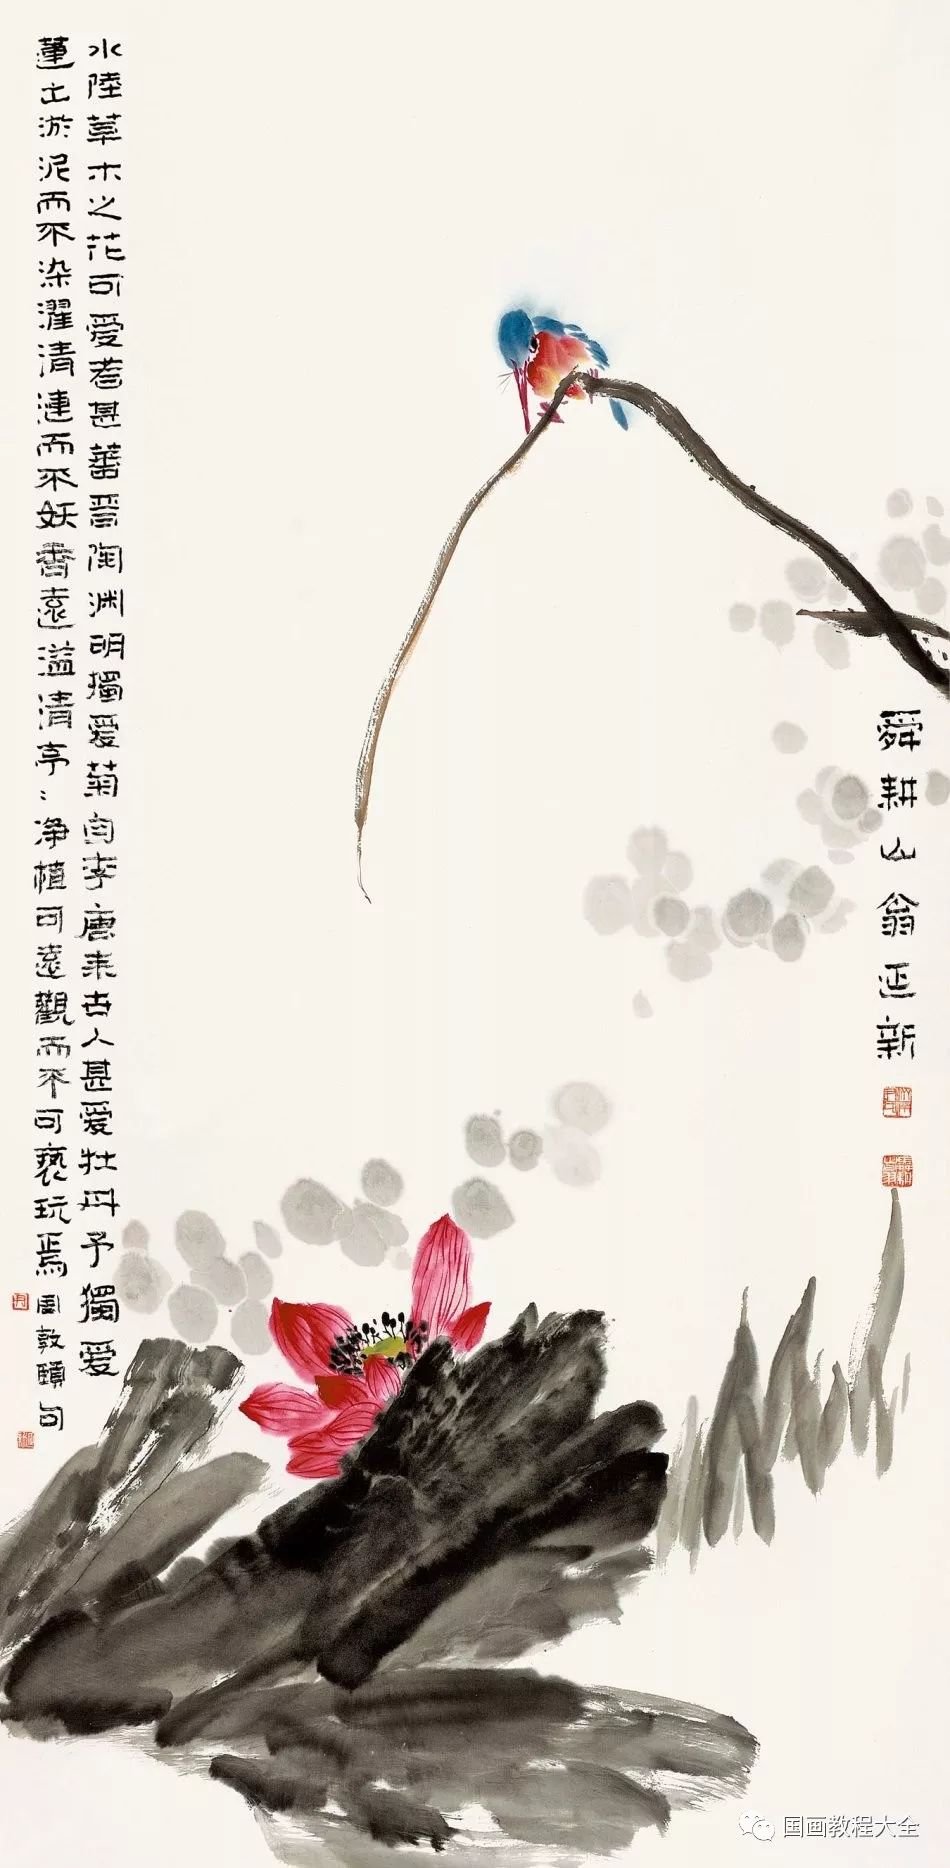 水陸草木之花可爱者甚蕃晉陶渊明獨爱菊自李唐来世人甚爱牡丹予獨爱
蓮出淤泥而不染濯清漣而不妖香遠溢清亭〻净植可遠觀而不可褻玩焉 周敦頤句
舜耕山翁正新
国画教程大全